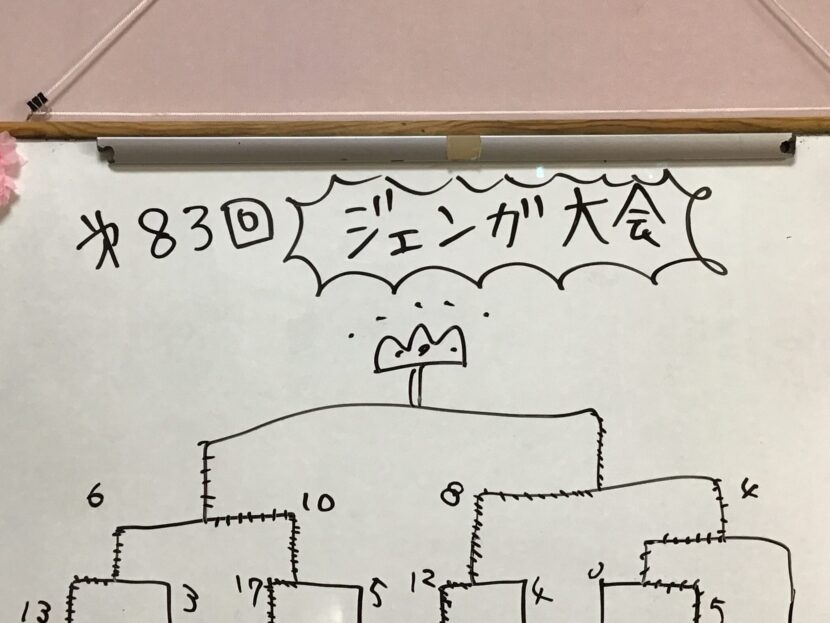 第83回 ジェンガ大会
6 10 8 4
13 3 17 5 12 4 0 5